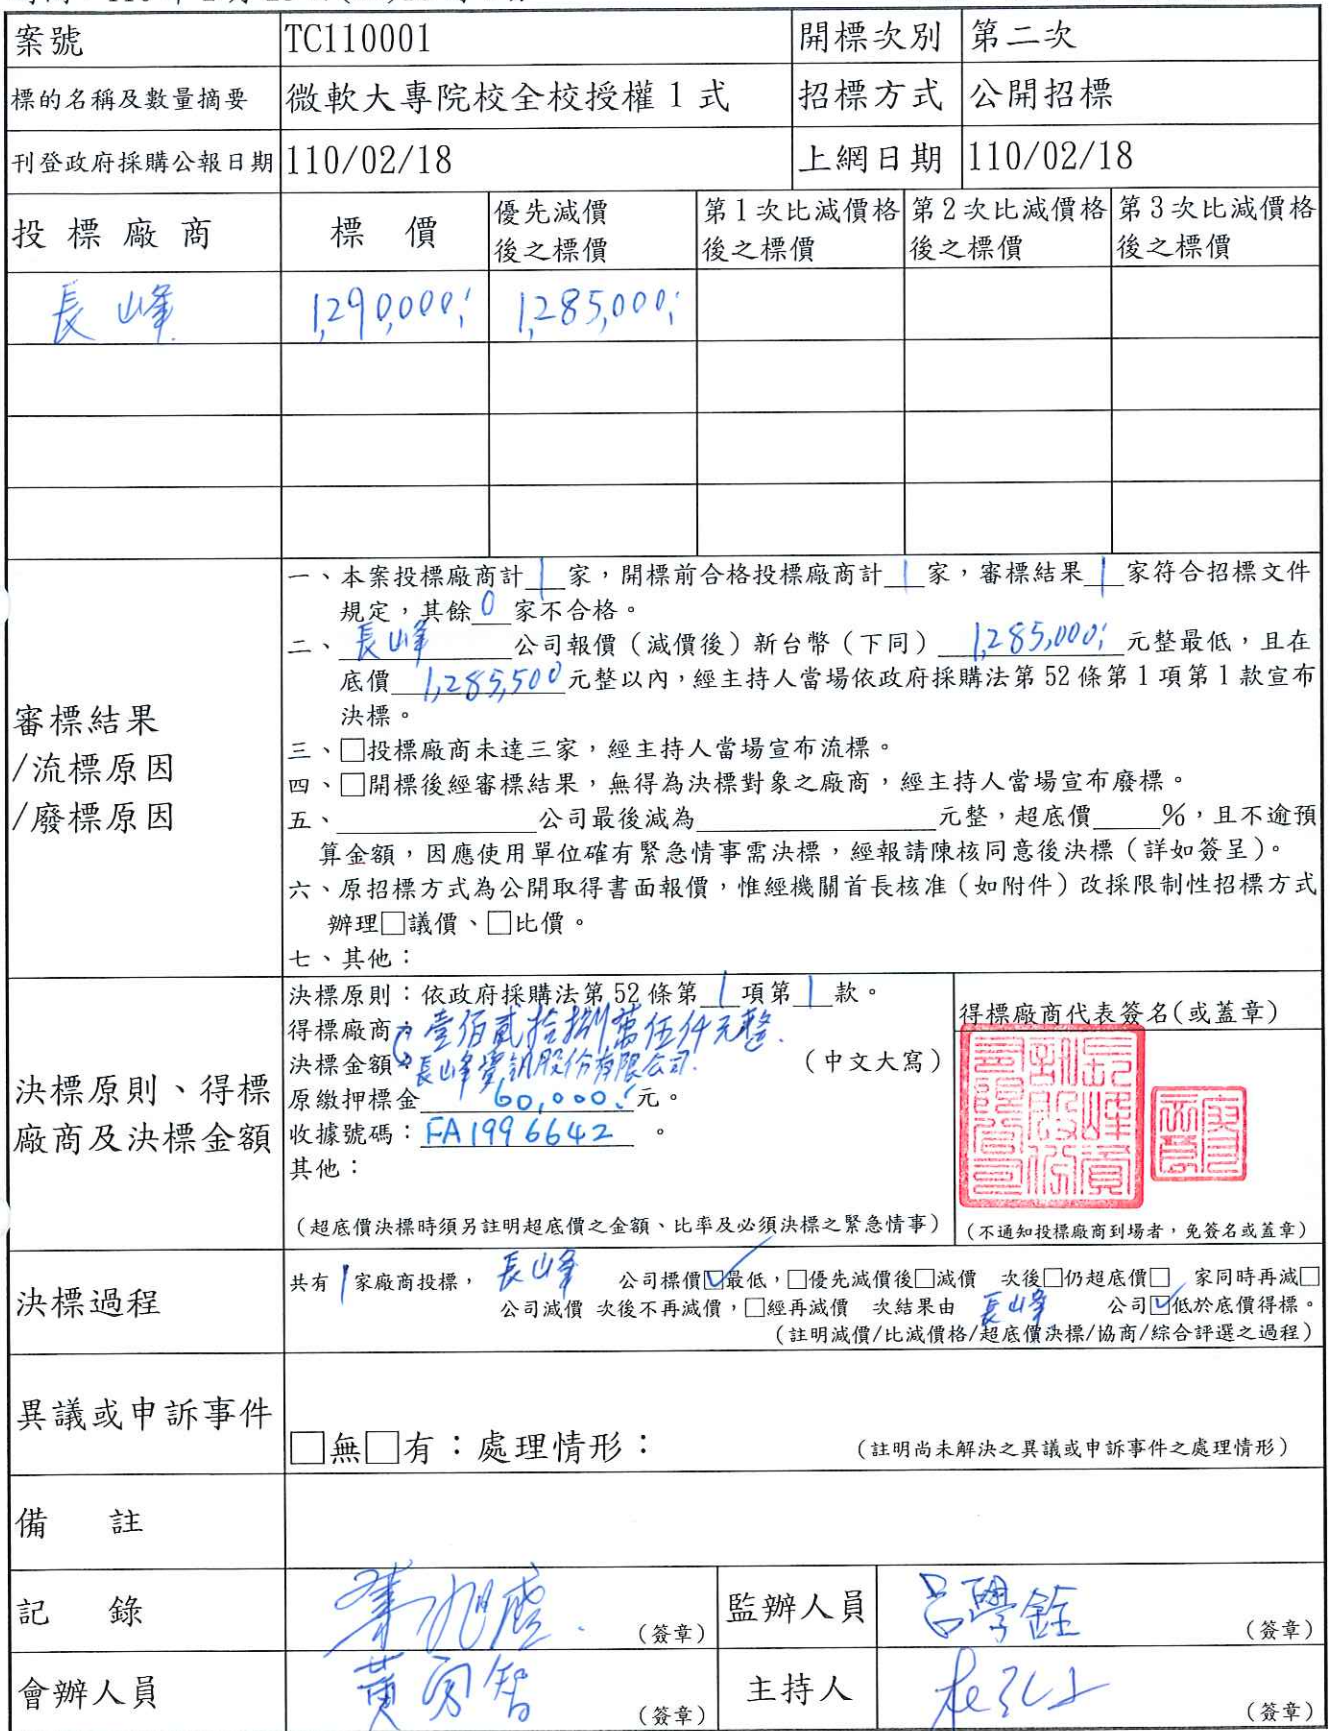 案號 TC110001 開標次別 第二次
標的名稱及數量摘要 微軟大專院校全校授權1式 招標方式 公開招標
刊登政府採購公報日期 110/02/18 上網日期 110/02/18
投標廠商 標價 優先減價後之標價 第1次比減價格後之標價 第2次比減價格後之標價 第3次比減價格後之標價
長峰 1,290,000; 1,285,000;
審標結果
/流標原因
/廢標原因
一、本案投標廠商計1家，開標前合格投標廠商計1家，審標結果1家符合招標文件
規定，其餘0家不合格。
二、長峰公司報價（減價後）新台幣（下同）1,285,000;元整最低，且在
底價1,285,500元整以內，經主持人當場依政府採購法第52條第1項第1款宣布
決標。
三、□投標廠商未達三家，經主持人當場宣布流標。
四、□開標後經審標結果，無得為決標對象之廠商，經主持人當場宣布廢標。
五、____公司最後減為____元整，超底價____%，且不逾預
算金額，因應使用單位確有緊急情事需決標，經報請陳核同意後決標（詳如簽呈）。
六、原招標方式為公開取得書面報價，惟經機關首長核准（如附件）改採限制性招標方式
辦理□議價、□比價。
七、其他：
決標原則、得標
廠商及決標金額
決標原則：依政府採購法第52條第1項第1款。
得標廠商 壹佰貳拾捌萬伍仟元整.
決標金額 長峰資訊股份有限公司. （中文大寫）
原繳押標金60,000;元。
收據號碼：FA1996642。
其他：
（超底價決標時須另註明超底價之金額、比率及必須決標之緊急情事）
得標廠商代表簽名(或蓋章)
（不通知投標廠商到場者，免簽名或蓋章）
決標過程
共有1家廠商投標，長峰 公司標價☑最低，□優先減價後□減價 次後□仍超底價□ 家同時再減□
公司減價 次後不再減價，□經再減價 次結果由 長峰 公司☑低於底價得標。
（註明減價/比減價格/超底價決標/協商/綜合評選之過程）
異議或申訴事件
□無□有：處理情形： （註明尚未解決之異議或申訴事件之處理情形）
備註
記錄 （簽章） 監辦人員 呂學銓 （簽章）
會辦人員 （簽章） 主持人 （簽章）